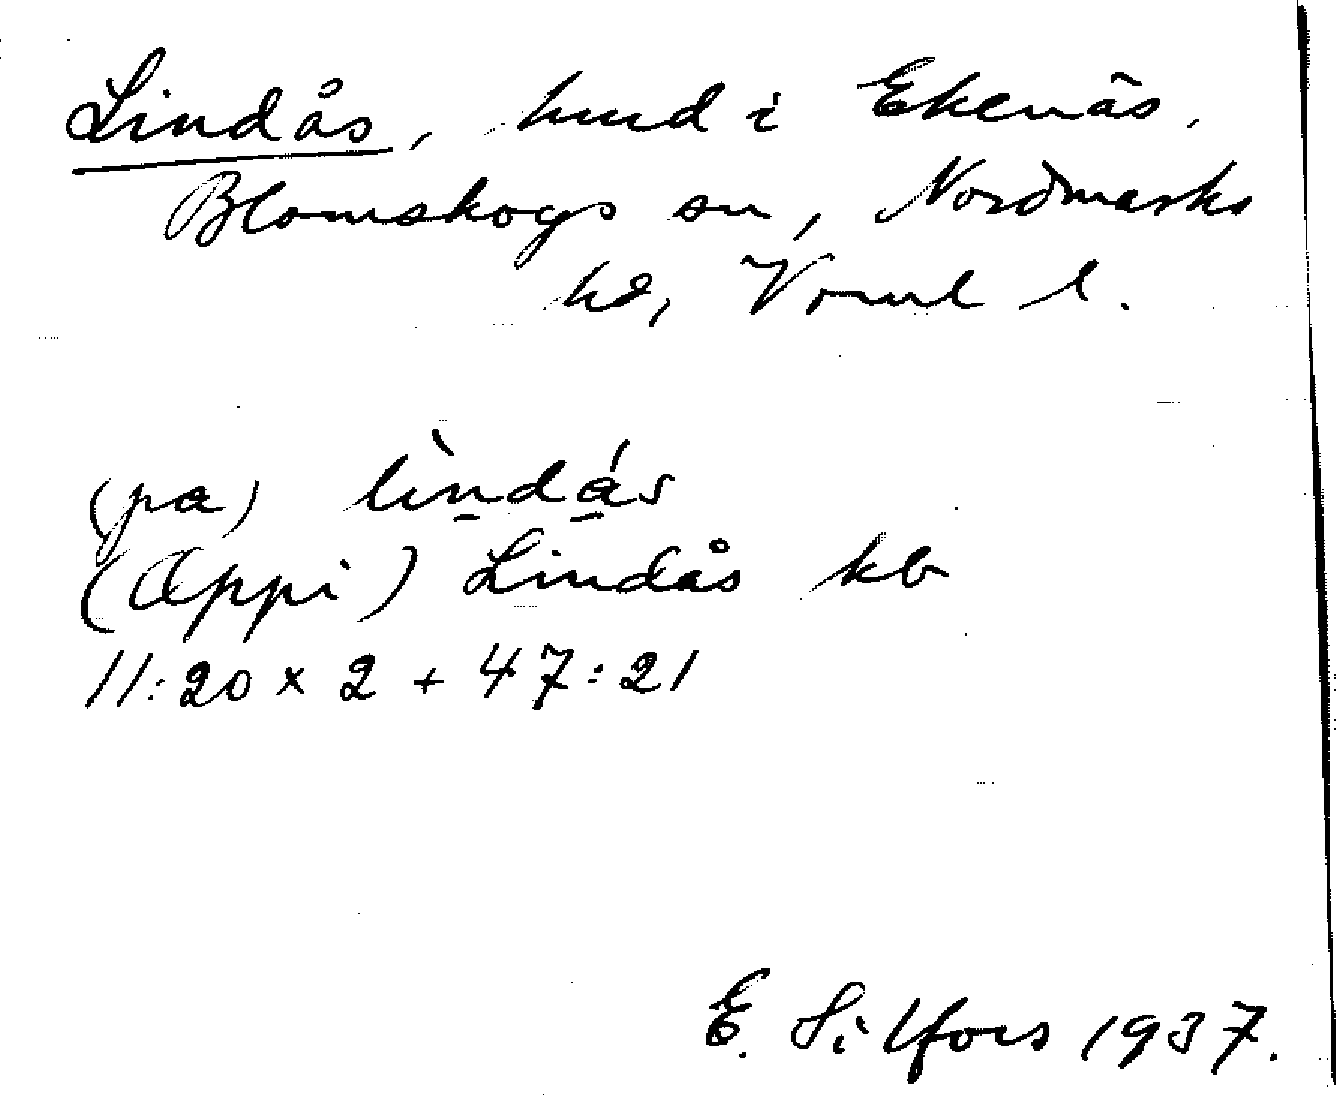 Lindås, hmd i Ekenäs,
Blomskogs sn, Nordmarks
hd, Vrml l.
(pa) lìndás
(Äppi) Lindås kb
11:20 x 2 + 47:21
E. Silfors 1937.